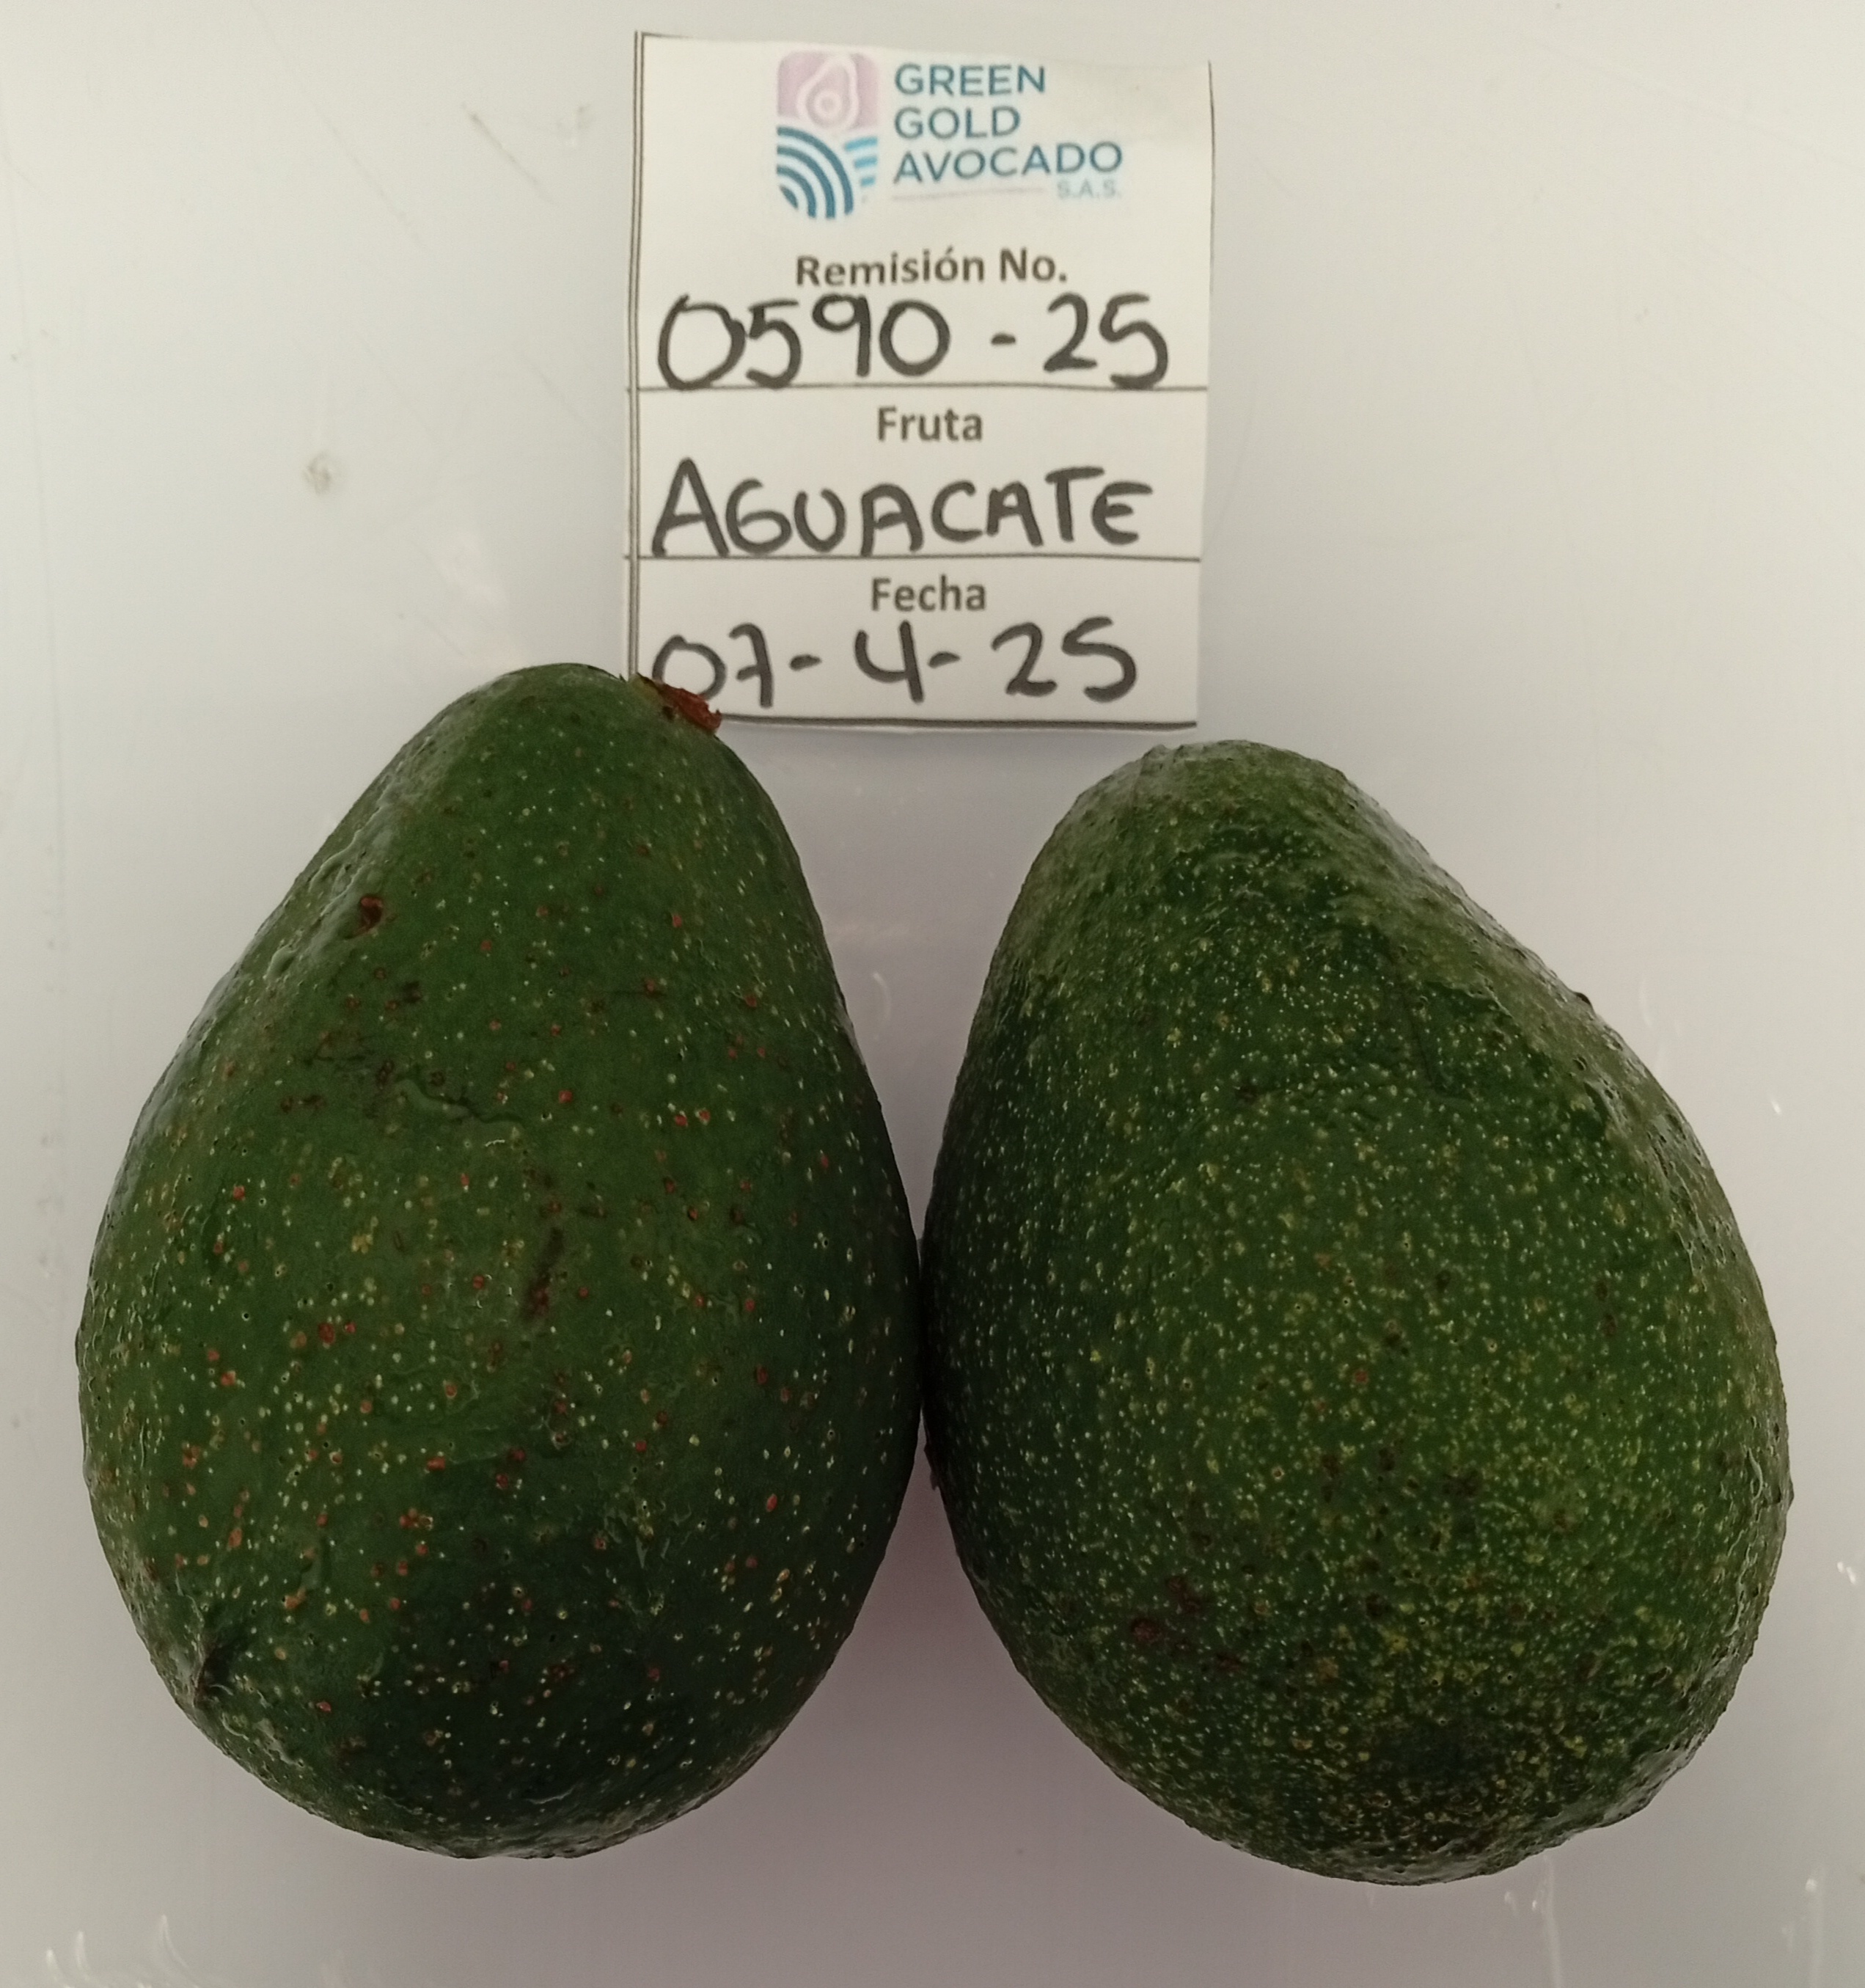 GREEN
GOLD
AVOCADO
S.A.S.
Remisión No.
0590-25
Fruta
AGUACATE
Fecha
07-4-25